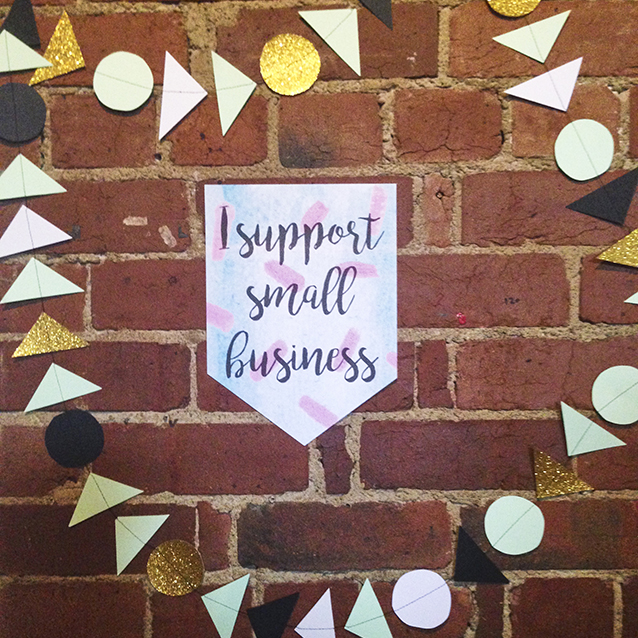 I support
small
business